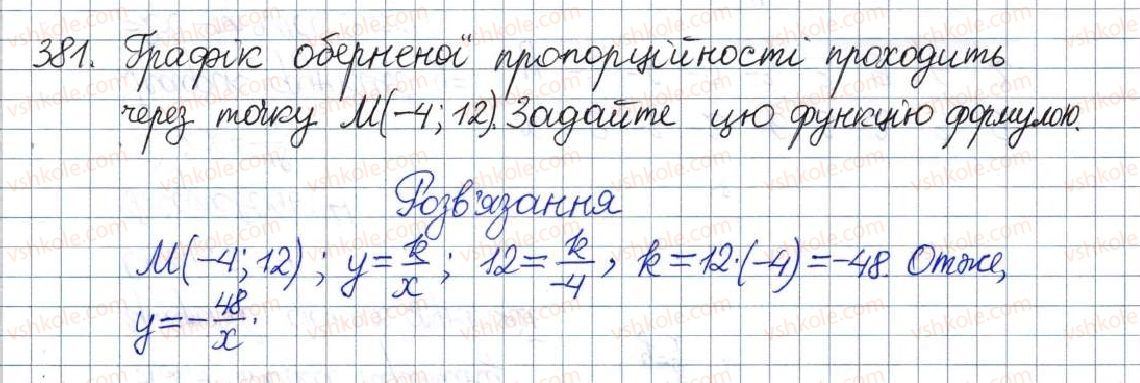 381. Графік оберненої пропорційності проходить
через точку M(-4; 12). Задайте цю функцію формулою.
Розв'язання
M(-4; 12); y = k/x; 12 = k/-4, k = 12·(-4) = -48. Отже,
y = -48/x.